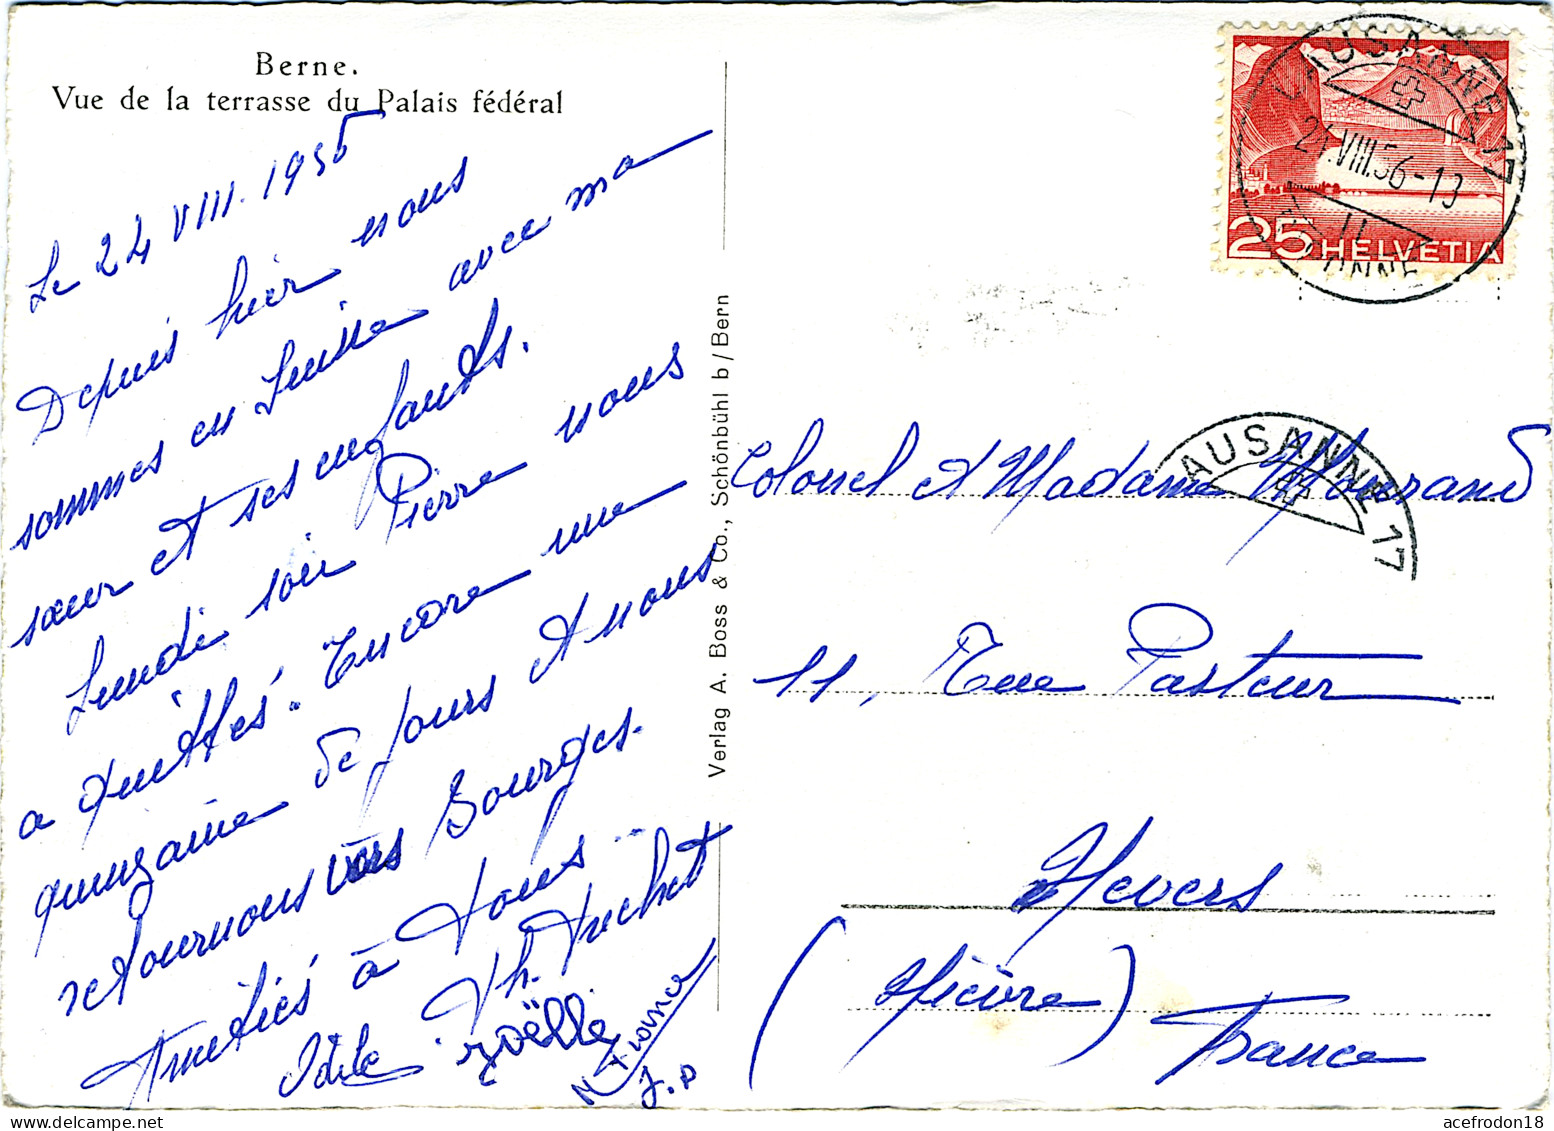 Berne.
Vue de la terrasse du Palais fédéral
Le 24 VIII. 1956
Depuis hier nous
sommes en Suisse avec ma
sœur et ses enfants.
Lundi soir Pierre nous
a quittés. Encore une
quinzaine de jours et nous
retournons vers Bourges.
Amitiés à tous
Odile Joëlle
J.P
Verlag A. Boss & Co., Schönbühl b/Bern
LAUSANNE 17
24.VIII.56-13
25 HELVETIA
LAUSANNE 17
Colonel et Madame
11, Rue Pasteur
Nevers
(Nièvre)
France
acefrodon18